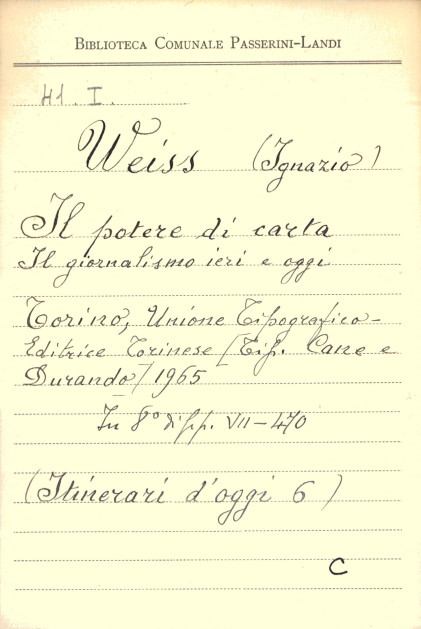 BIBLIOTECA COMUNALE PASSERINI-LANDI
H1. I.
Weiss (Ignazio)
Il potere di carta
Il giornalismo ieri e oggi
Torino, Unione Tipografico-
Editrice Torinese [Tip. Cane e
Durando] 1965
In 8° di pp. VII-470
(Itinerari d'oggi 6)
C